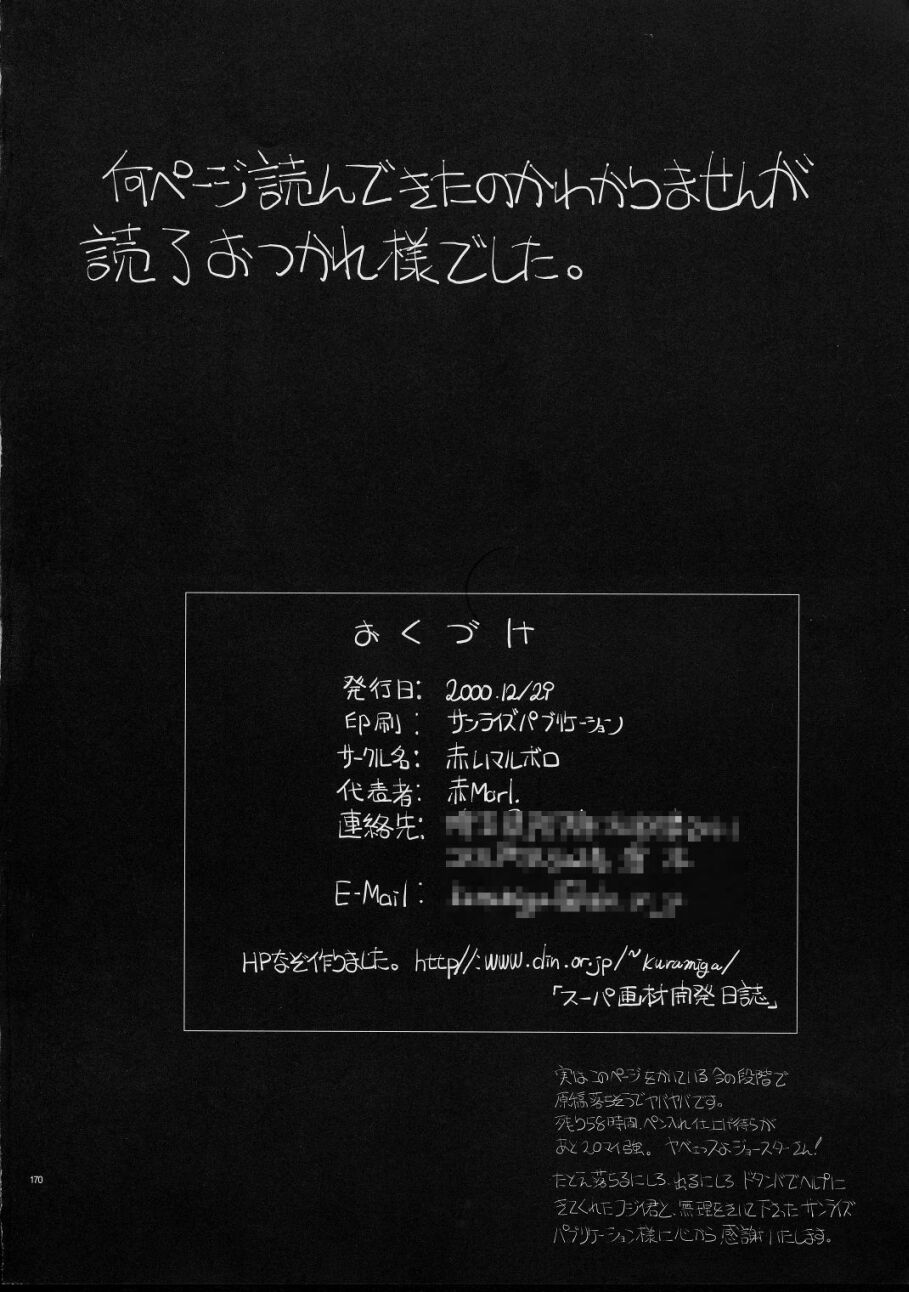 何ページ読んできたのかわかりませんが
読了おつかれ様でした。
おくづけ
発行日: 2000.12/29
印刷: サンライズパブリケーション
サークル名: 赤いマルボロ
代表者: 赤Marl.
連絡先:
E-Mail:
HPなぞ作りました。http//:www.din.or.jp/~kuramiga/
「スーパ画材開発日誌」
実はこのページをかいている今の段階で
原稿落ちそうでヤバヤバです。
残り58時間、ペン入れ仕上げ待ちが
あと20マイ強。ヤベェっスよジョースターさん!
たとえ落ちるにしろ、出るにしろドタンバでヘルプに
きてくれたフジイ君と、無理をきいて下さったサンライズ
パブリケーション様に心から感謝いたします。
170